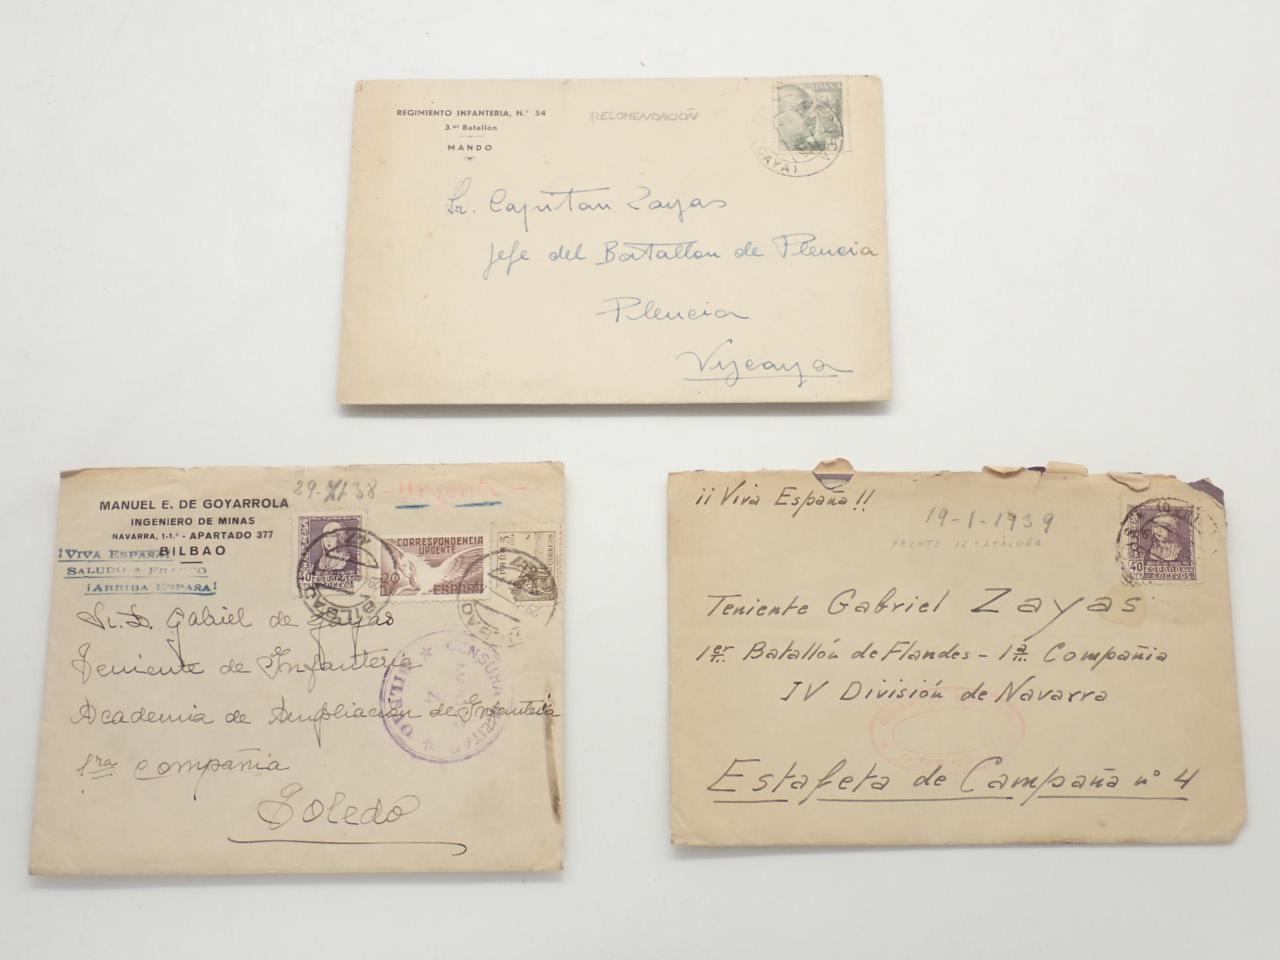 REGIMIENTO INFANTERIA, N.º 54
3.er Batallón
MANDO
RECOMENDACIÓN
ESPAÑA
CAYA)
Sr. Capitan Zayas
Jefe del Batallon de Plencia
Plencia
Vizcaya
MANUEL E. DE GOYARROLA
INGENIERO DE MINAS
NAVARRA, 1-1.º - APARTADO 377
BILBAO
29-XI-38
- Urgente -
¡VIVA ESPAÑA!
SALUDO A FRANCO
¡ARRIBA ESPAÑA!
40
ESPAÑA
CORREOS
CORRESPONDENCIA
URGENTE
20
ESPAÑA
CORREOS
BILBAO
Sr. D. Gabriel de Zayas
Teniente de Infantería
Academia de Ampliacion de Infantería
1ra Compañia
Toledo
CENSURA MILITAR
¡¡Viva España!!
19-1-1939
FRENTE DE CATALUÑA
40
ESPAÑA
CORREOS
Teniente Gabriel Zayas
1er Batallón de Flandes - 1a Compañia
IV División de Navarra
Estafeta de Campaña nº 4